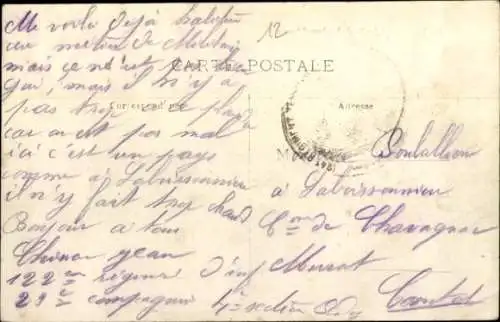 12
CARTE POSTALE
Correspondance
Adresse
Me voila déjà habitué
au metier de Militair
mais ce n'est pas bien
gai, mais il n'y a
pas trop a plaindre
car on est pas mal
ici c'est un pays
comme a Laboissonnieu
il n'y fait trop chaud
Bonjour a tous
Jean
122eme régiment d'inf
29e compagnie 4e section
M
à Laboissonnieu
Cne de Chavagnac
Murat
Cantal